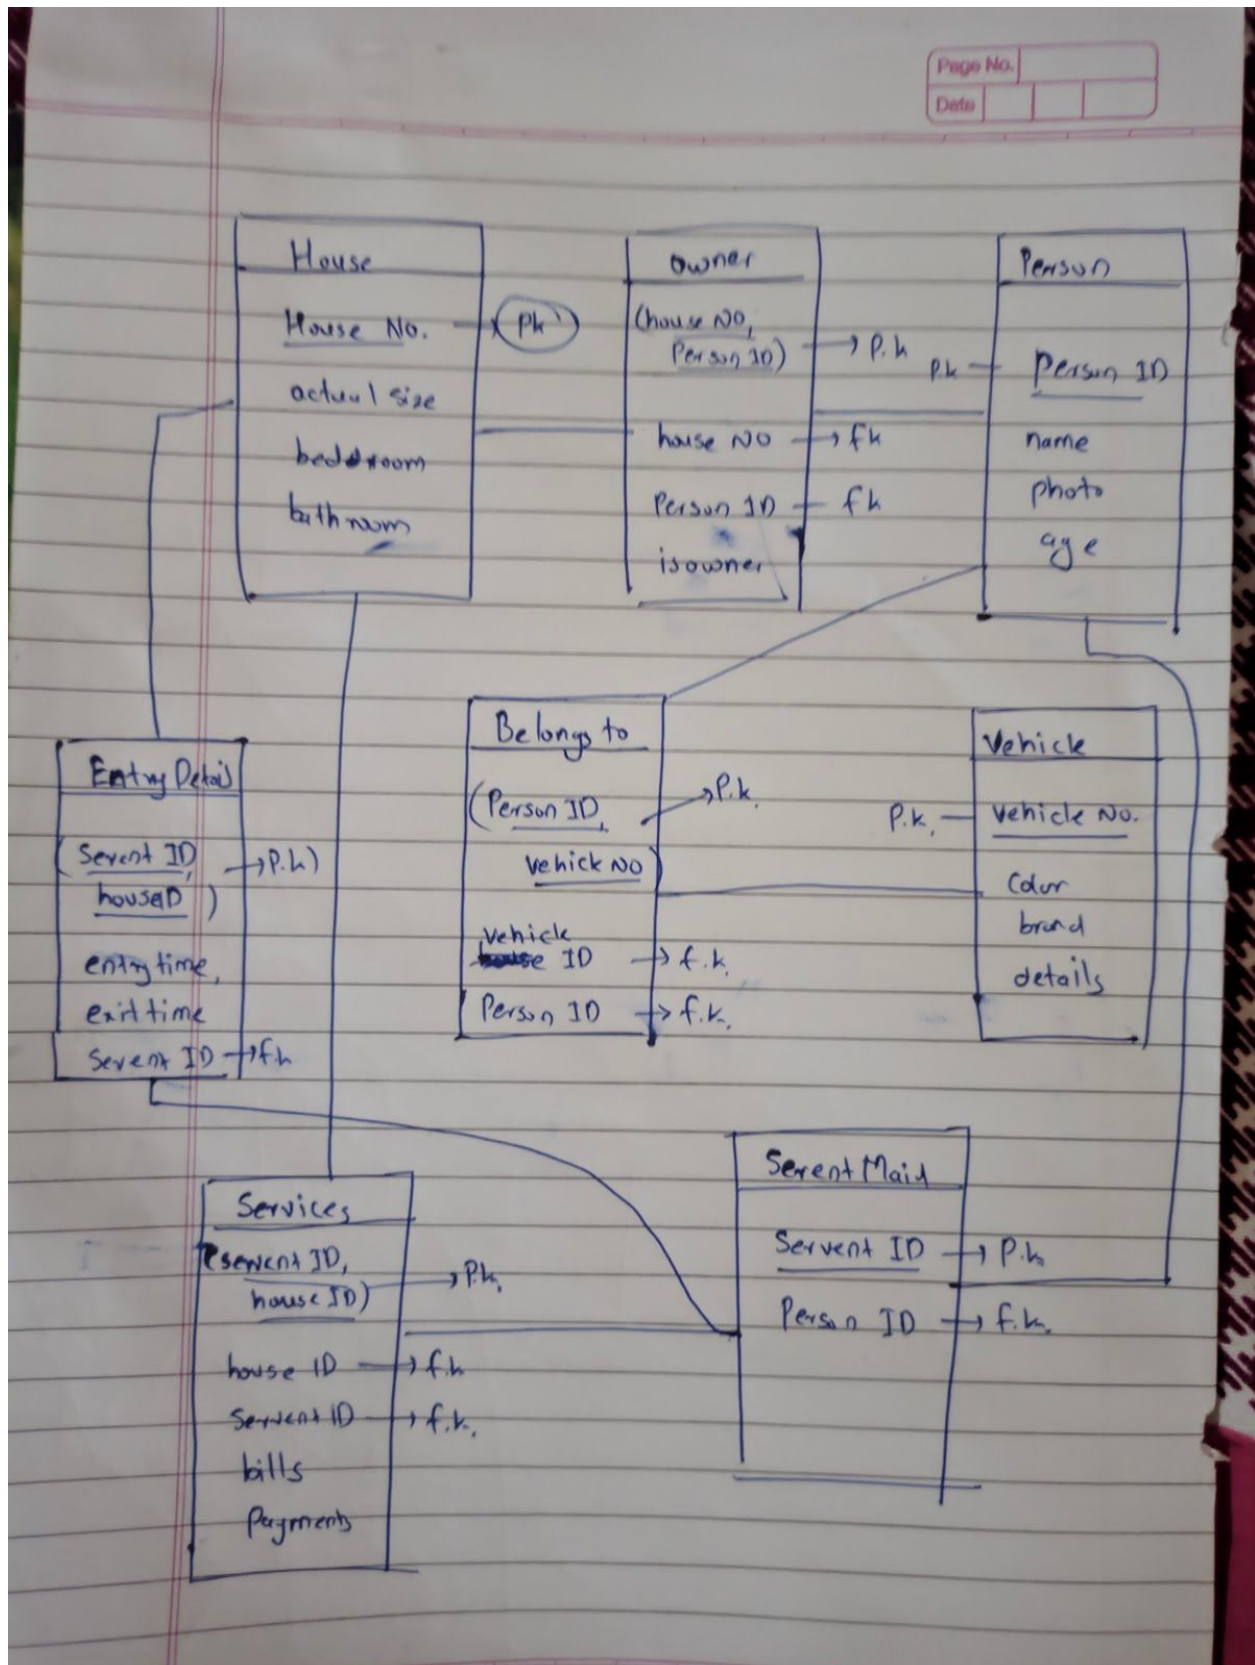 Page No.
Date
House
House No. → Pk
actual size
bedroom
bathroom
owner
(house NO,
Person ID) → P.k
house NO → fk
Person ID — fk
isowner
Person
P.k — Person ID
name
photo
age
Entry Detail
(Servent ID, → P.k)
houseID)
entry time,
exit time
Servent ID → f.k
Belongs to
(Person ID, → P.k.
vehicle NO)
vehicle
ID → f.k.
Person ID → f.k.
Vehicle
P.k. — Vehicle No.
Color
brand
details
Services
(servent ID,
house ID) → P.k.
house ID → f.k
Servent ID → f.k.
bills
Payments
Servent Maid
Servent ID → P.k
Person ID → f.k.